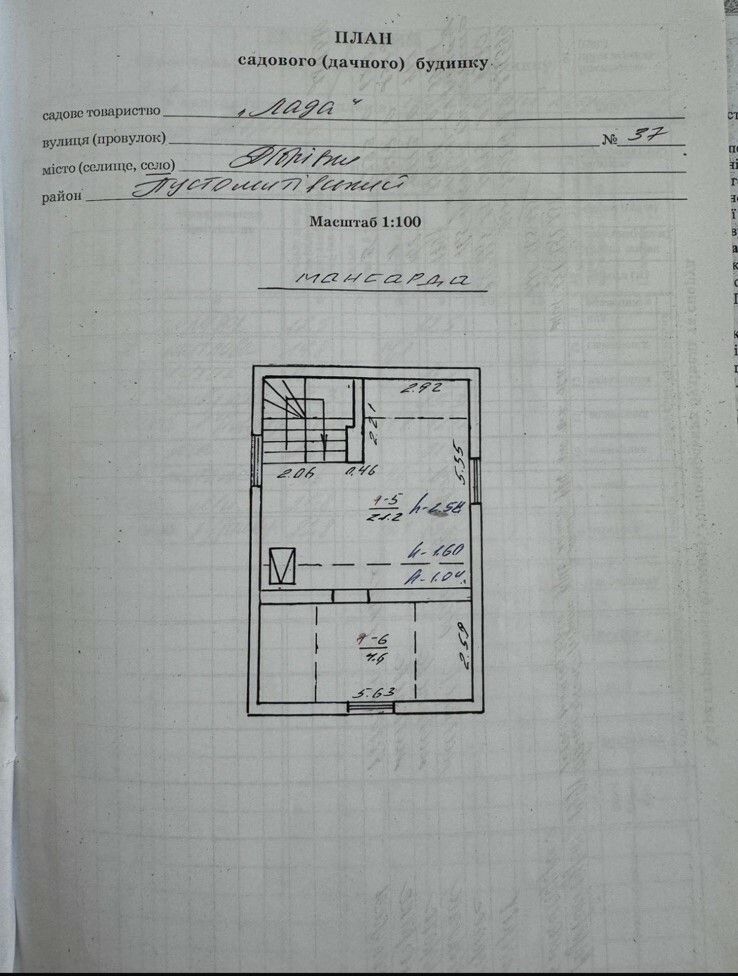 ПЛАН
садового (дачного) будинку
садове товариство „Лада“
вулиця (провулок) № 37
місто (селище, село)
район Пустомитівський
Масштаб 1:100
мансарда
2.92
2.21
5.55
2.06 0.46
1-5
21.2
h-2.54
h-1.60
h-1.04
1-6
7.6
2.59
5.63